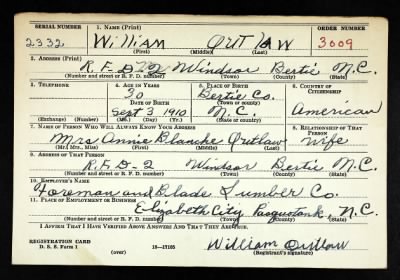 SERIAL NUMBER 1. NAME (Print) ORDER NUMBER
2332 William Outlaw 3009
(First) (Middle) (Last)
2. ADDRESS (Print)
R.F.D. #2 Windsor Bertie N.C.
(Number and street or R. F. D. number) (Town) (County) (State)
3. TELEPHONE 4. AGE IN YEARS 5. PLACE OF BIRTH 6. COUNTRY OF CITIZENSHIP
30 Bertie Co.
DATE OF BIRTH (Town or county)
Sept 3 1910 N.C. American
(Mo.) (Day) (Yr.) (State or country)
7. NAME OF PERSON WHO WILL ALWAYS KNOW YOUR ADDRESS 8. RELATIONSHIP OF THAT PERSON
Mrs Annie Blanche Outlaw Wife
(Mr., Mrs., Miss) (First) (Middle) (Last)
9. ADDRESS OF THAT PERSON
R.F.D-2 Windsor Bertie N.C.
(Number and street or R. F. D. number) (Town) (County) (State)
10. EMPLOYER'S NAME
Foreman and Blade Lumber Co.
11. PLACE OF EMPLOYMENT OR BUSINESS
Elizabeth City Pasquotank, N.C.
(Number and street or R. F. D. number) (Town) (County) (State)
I AFFIRM THAT I HAVE VERIFIED ABOVE ANSWERS AND THAT THEY ARE TRUE.
REGISTRATION CARD
D. S. S. Form 1 (over) 16—17105 William Outlaw
(Registrant's signature)